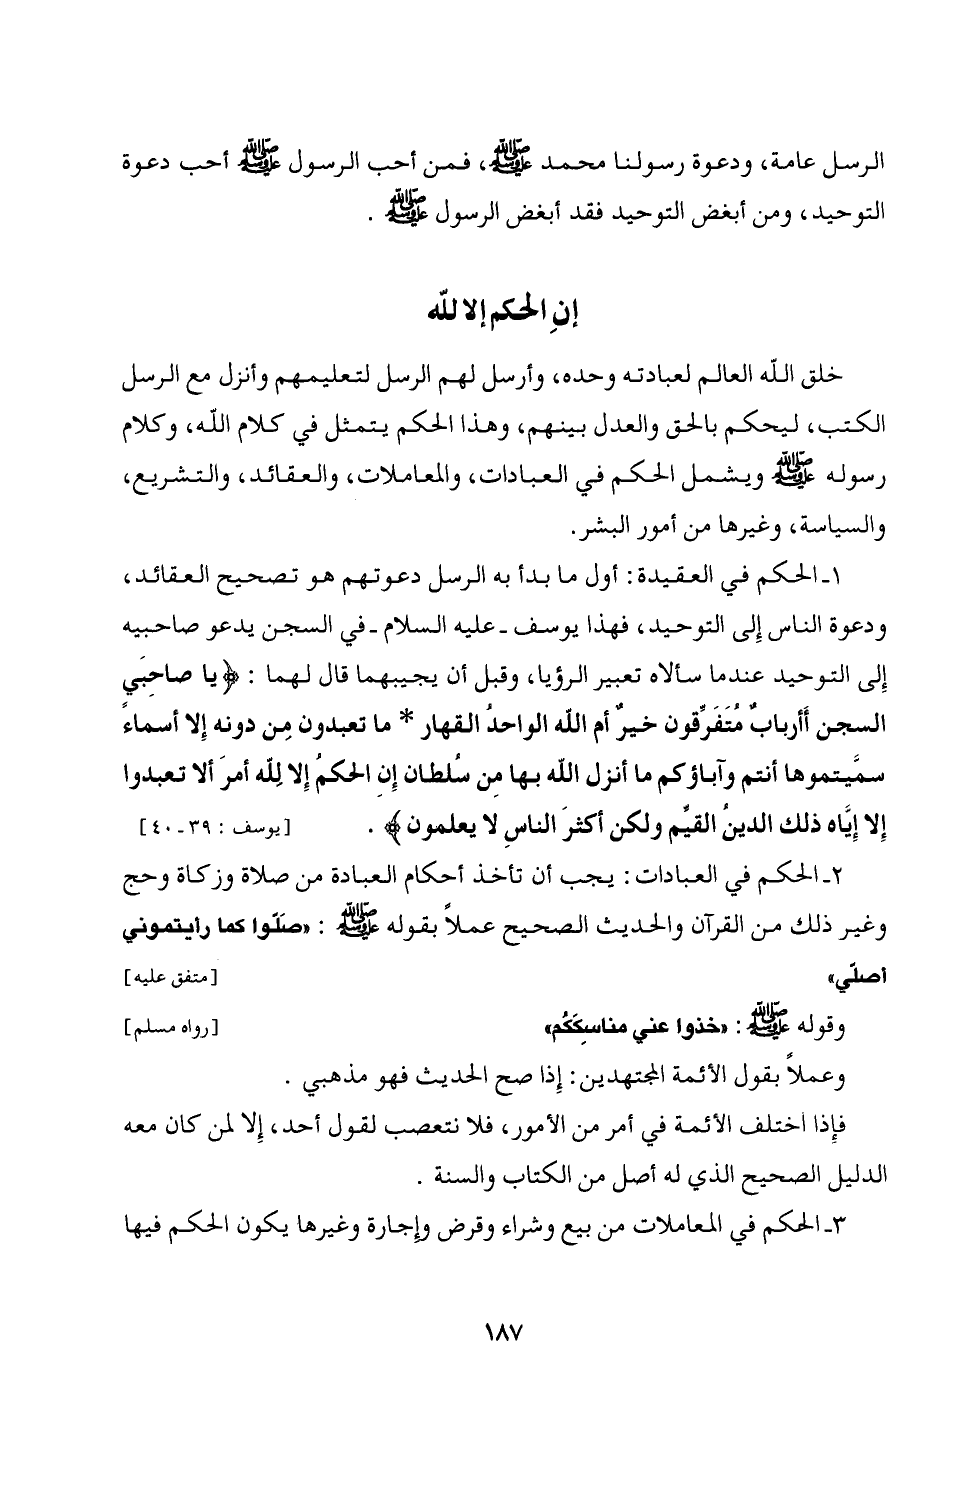 الرسل عامة، ودعوة رسولنا محمد ﷺ، فمن أحب الرسول ﷺ أحب دعوة
التوحيد، ومن أبغض التوحيد فقد أبغض الرسول ﷺ .
إنِ الحكم إلا للّه
خلق اللّه العالم لعبادته وحده، وأرسل لهم الرسل لتعليمهم وأنزل مع الرسل
الكتب، ليحكم بالحق والعدل بينهم، وهذا الحكم يتمثل في كلام اللّه، وكلام
رسوله ﷺ ويشمل الحكم في العبادات، والمعاملات، والعقائد، والتشريع،
والسياسة، وغيرها من أمور البشر.
١ـ الحكم في العقيدة: أول ما بدأ به الرسل دعوتهم هو تصحيح العقائد،
ودعوة الناس إلى التوحيد، فهذا يوسف ـ عليه السلام ـ في السجن يدعو صاحبيه
إلى التوحيد عندما سألاه تعبير الرؤيا، وقبل أن يجيبهما قال لهما : ﴿يا صاحبَي
السجن أأربابٌ مُتَفَرِّقون خيرٌ أم اللّه الواحدُ القهار * ما تعبدون مِن دونه إلا أسماءً
سمَّيتموها أنتم وآباؤكم ما أنزل اللّه بها مِن سُلطان إنِ الحكمُ إلا لِلّه أمرَ ألا تعبدوا
إلا إيَّاه ذلك الدينُ القيِّم ولكن أكثرَ الناسِ لا يعلمون﴾ . [يوسف : ٣٩ ـ ٤٠]
٢ـ الحكم في العبادات: يجب أن تأخذ أحكام العبادة من صلاة وزكاة وحج
وغير ذلك من القرآن والحديث الصحيح عملاً بقوله ﷺ : «صَلّوا كما رأيتموني
أصلّي» [متفق عليه]
وقوله ﷺ : «خذوا عني مناسِكَكُم» [رواه مسلم]
وعملاً بقول الأئمة المجتهدين: إذا صح الحديث فهو مذهبي .
فإذا اختلف الأئمة في أمر من الأمور، فلا نتعصب لقول أحد، إلا لمن كان معه
الدليل الصحيح الذي له أصل من الكتاب والسنة .
٣ـ الحكم في المعاملات من بيع وشراء وقرض وإجارة وغيرها يكون الحكم فيها
١٨٧